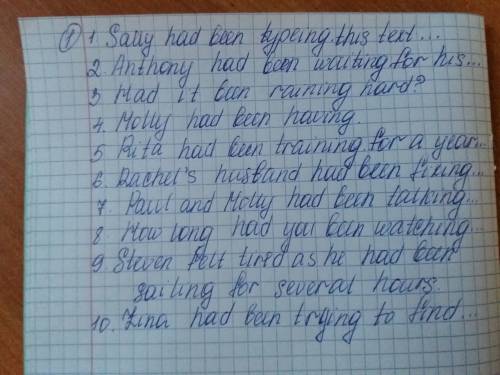 ① 1. Sally had been typeing this text...
2. Anthony had been waiting for his...
3. Had it been raining hard?
4. Molly had been having.
5. Rita had been training for a year...
6. Rachel's husband had been fixing...
7. Paul and Molly had been talking...
8. How long had you been watching...
9. Steven felt tired as he had been
sailing for several hours.
10. Zina had been trying to find...